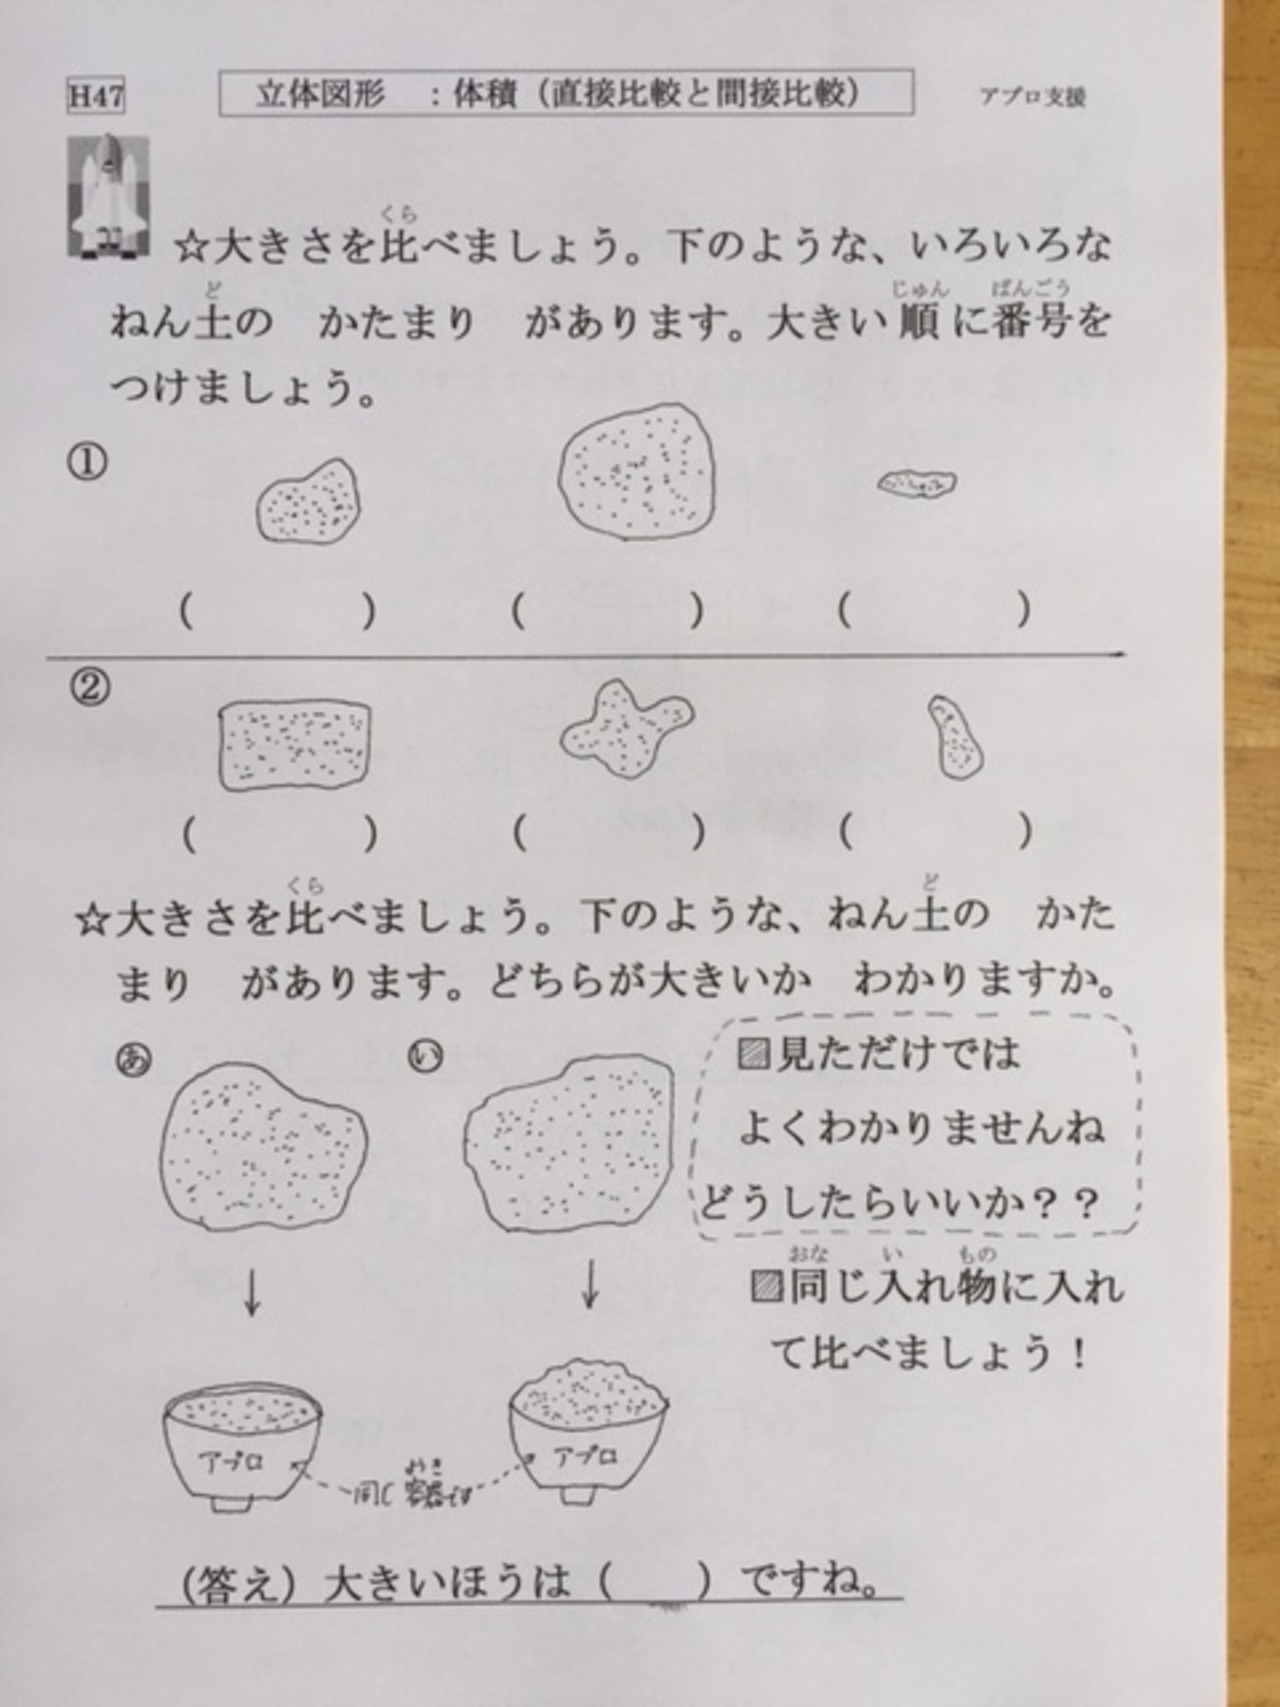 H47
立体図形　：体積（直接比較と間接比較）
アプロ支援
くら
☆大きさを比べましょう。下のような、いろいろな
ど　じゅん　ばんごう
ねん土の　かたまり　があります。大きい順に番号を
つけましょう。
①
(　　) (　　) (　　)
②
(　　) (　　) (　　)
くら　ど
☆大きさを比べましょう。下のような、ねん土の　かた
まり　があります。どちらが大きいか　わかりますか。
あ　い
▨見ただけでは
よくわかりませんね
どうしたらいいか？？
おな　い　もの
▨同じ入れ物に入れ
て比べましょう！
アプロ　アプロ
ようき
同じ容器です
（答え）大きいほうは（　　）ですね。